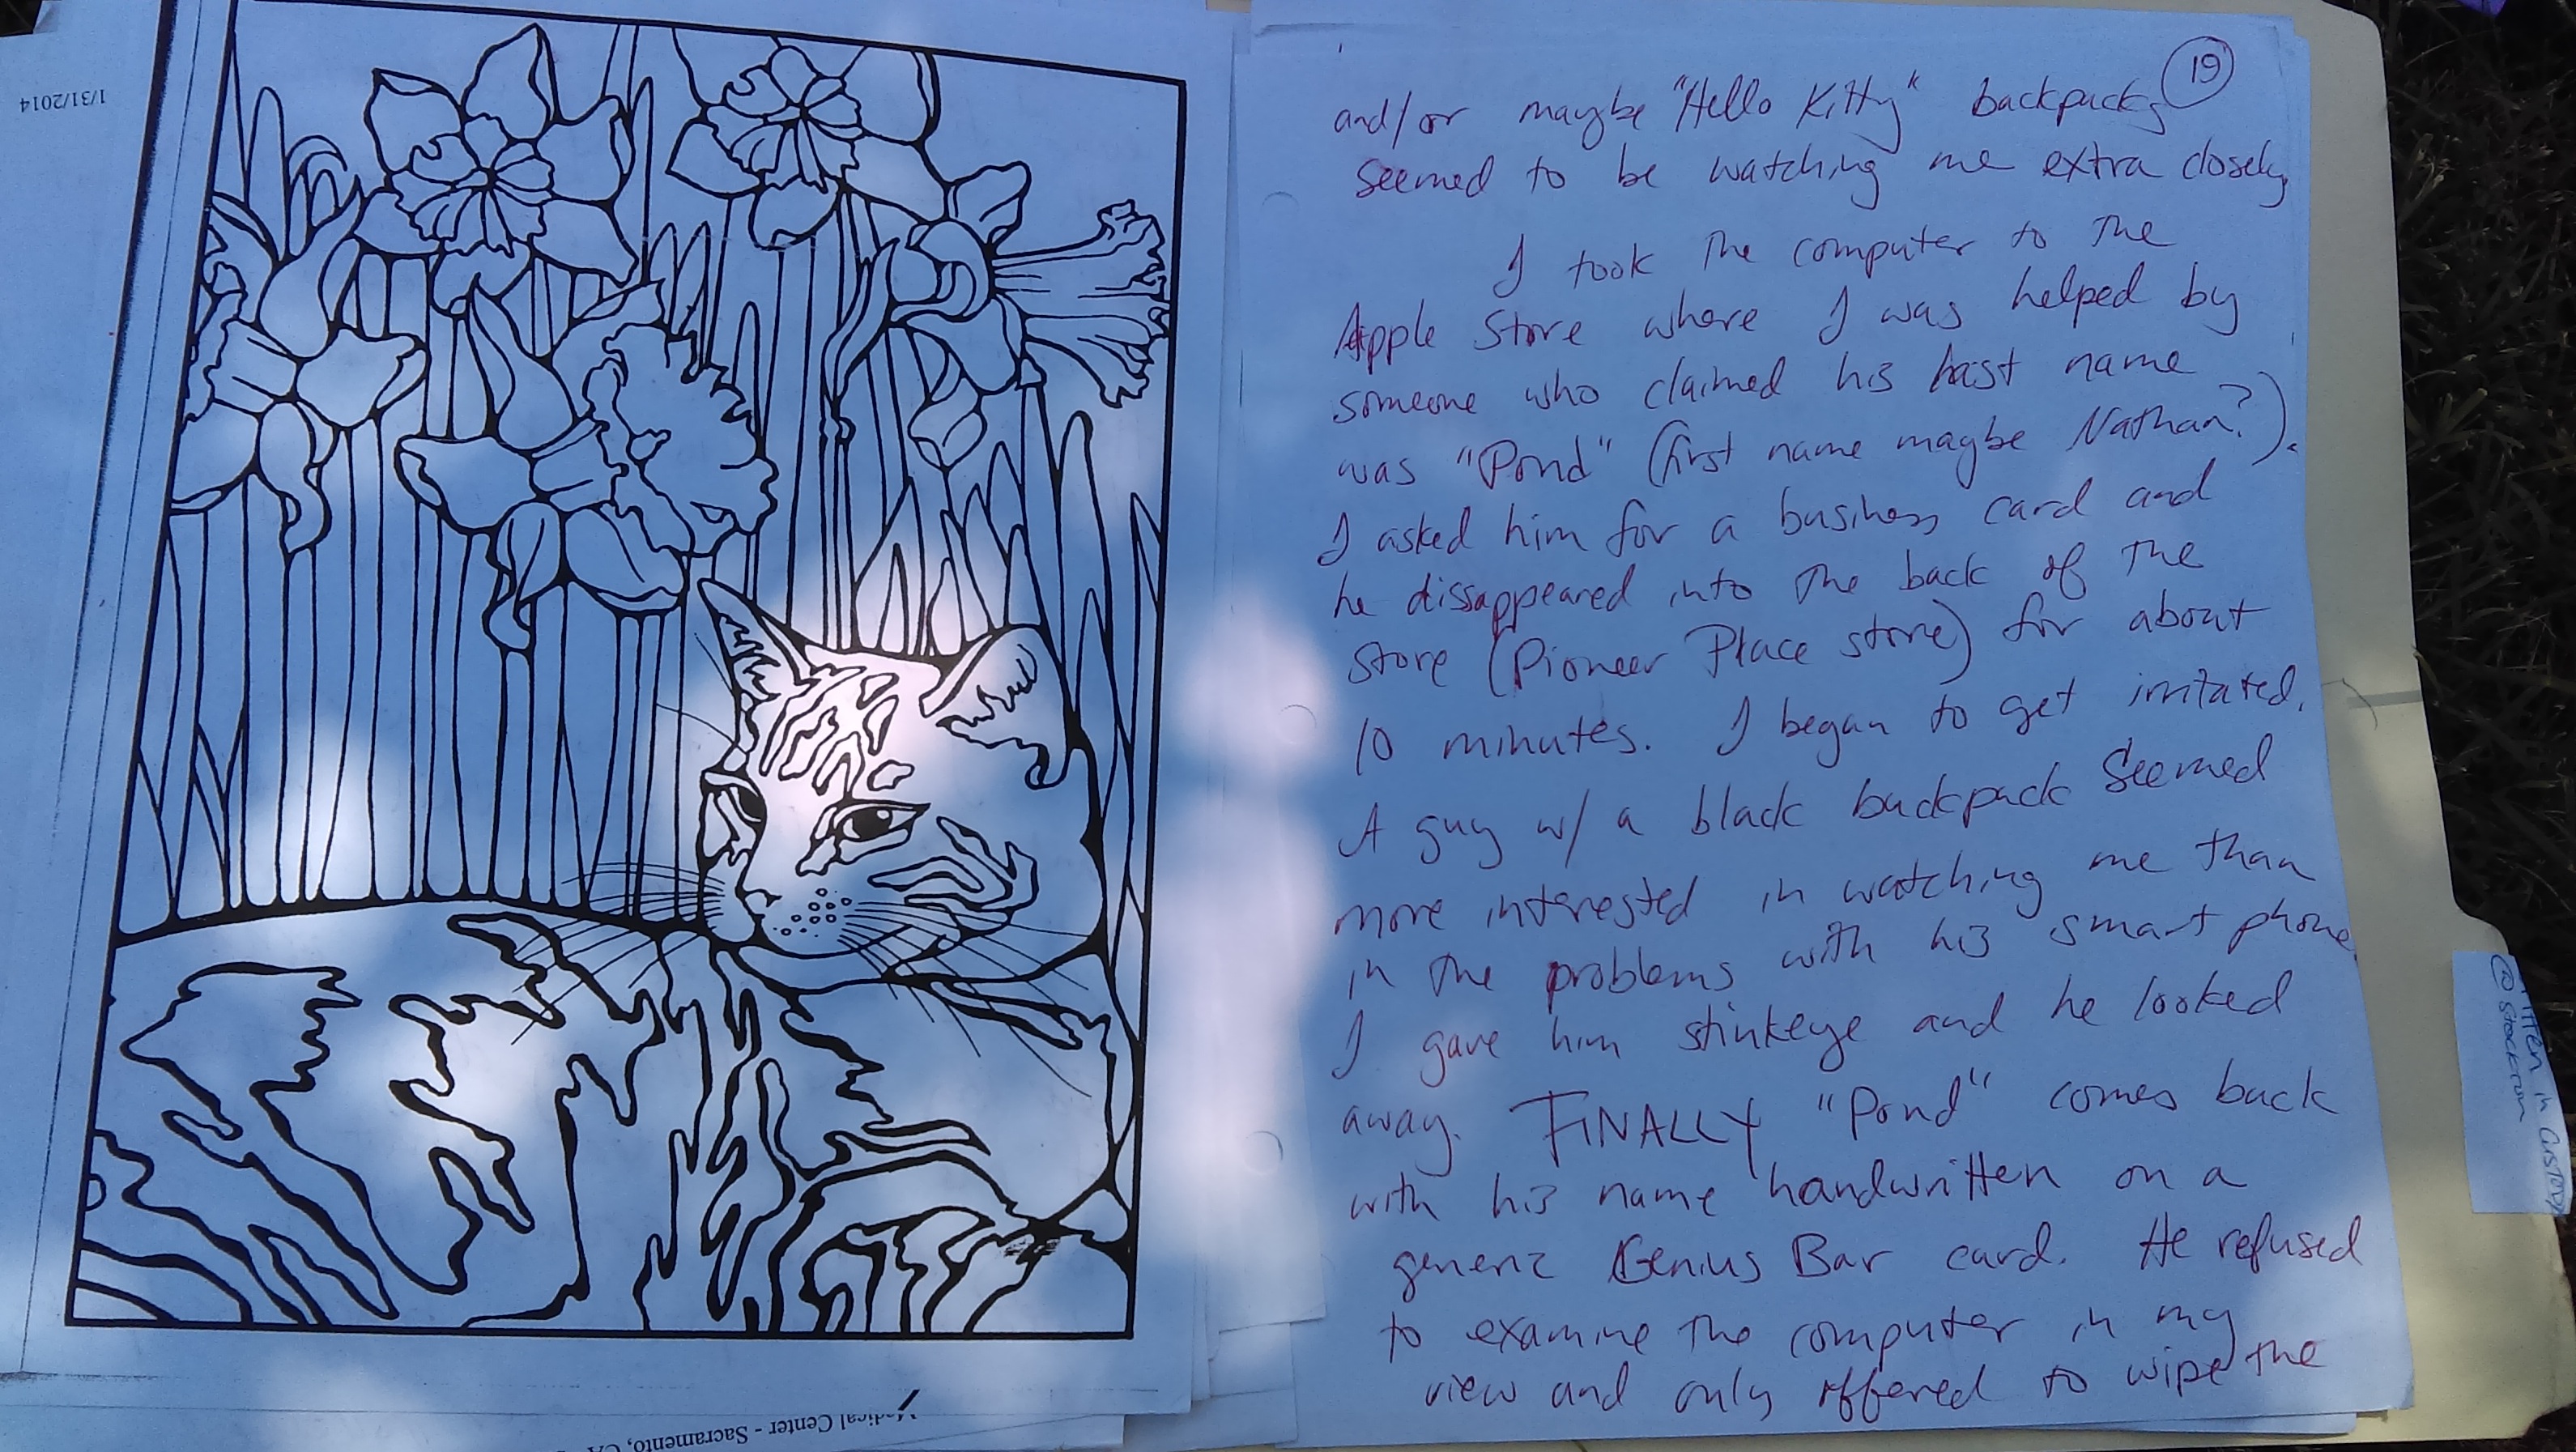 1/31/2014
19
and/or maybe "Hello Kitty" backpacks
seemed to be watching me extra closely
I took the computer to the
Apple Store where I was helped by
someone who claimed his last name
was "Pond" (first name maybe Nathan?).
I asked him for a business card and
he dissappeared into the back of the
store (Pioneer Place store) for about
10 minutes. I began to get irritated.
A guy w/ a black backpack seemed
more interested in watching me than
in the problems with his smart phone
I gave him stinkeye and he looked
away. FINALLY "Pond" comes back
with his name handwritten on a
generic Genius Bar card. He refused
to examine the computer in my
view and only offered to wipe the
Medical Center - Sacramento, CA
in Custody
@ Stockton